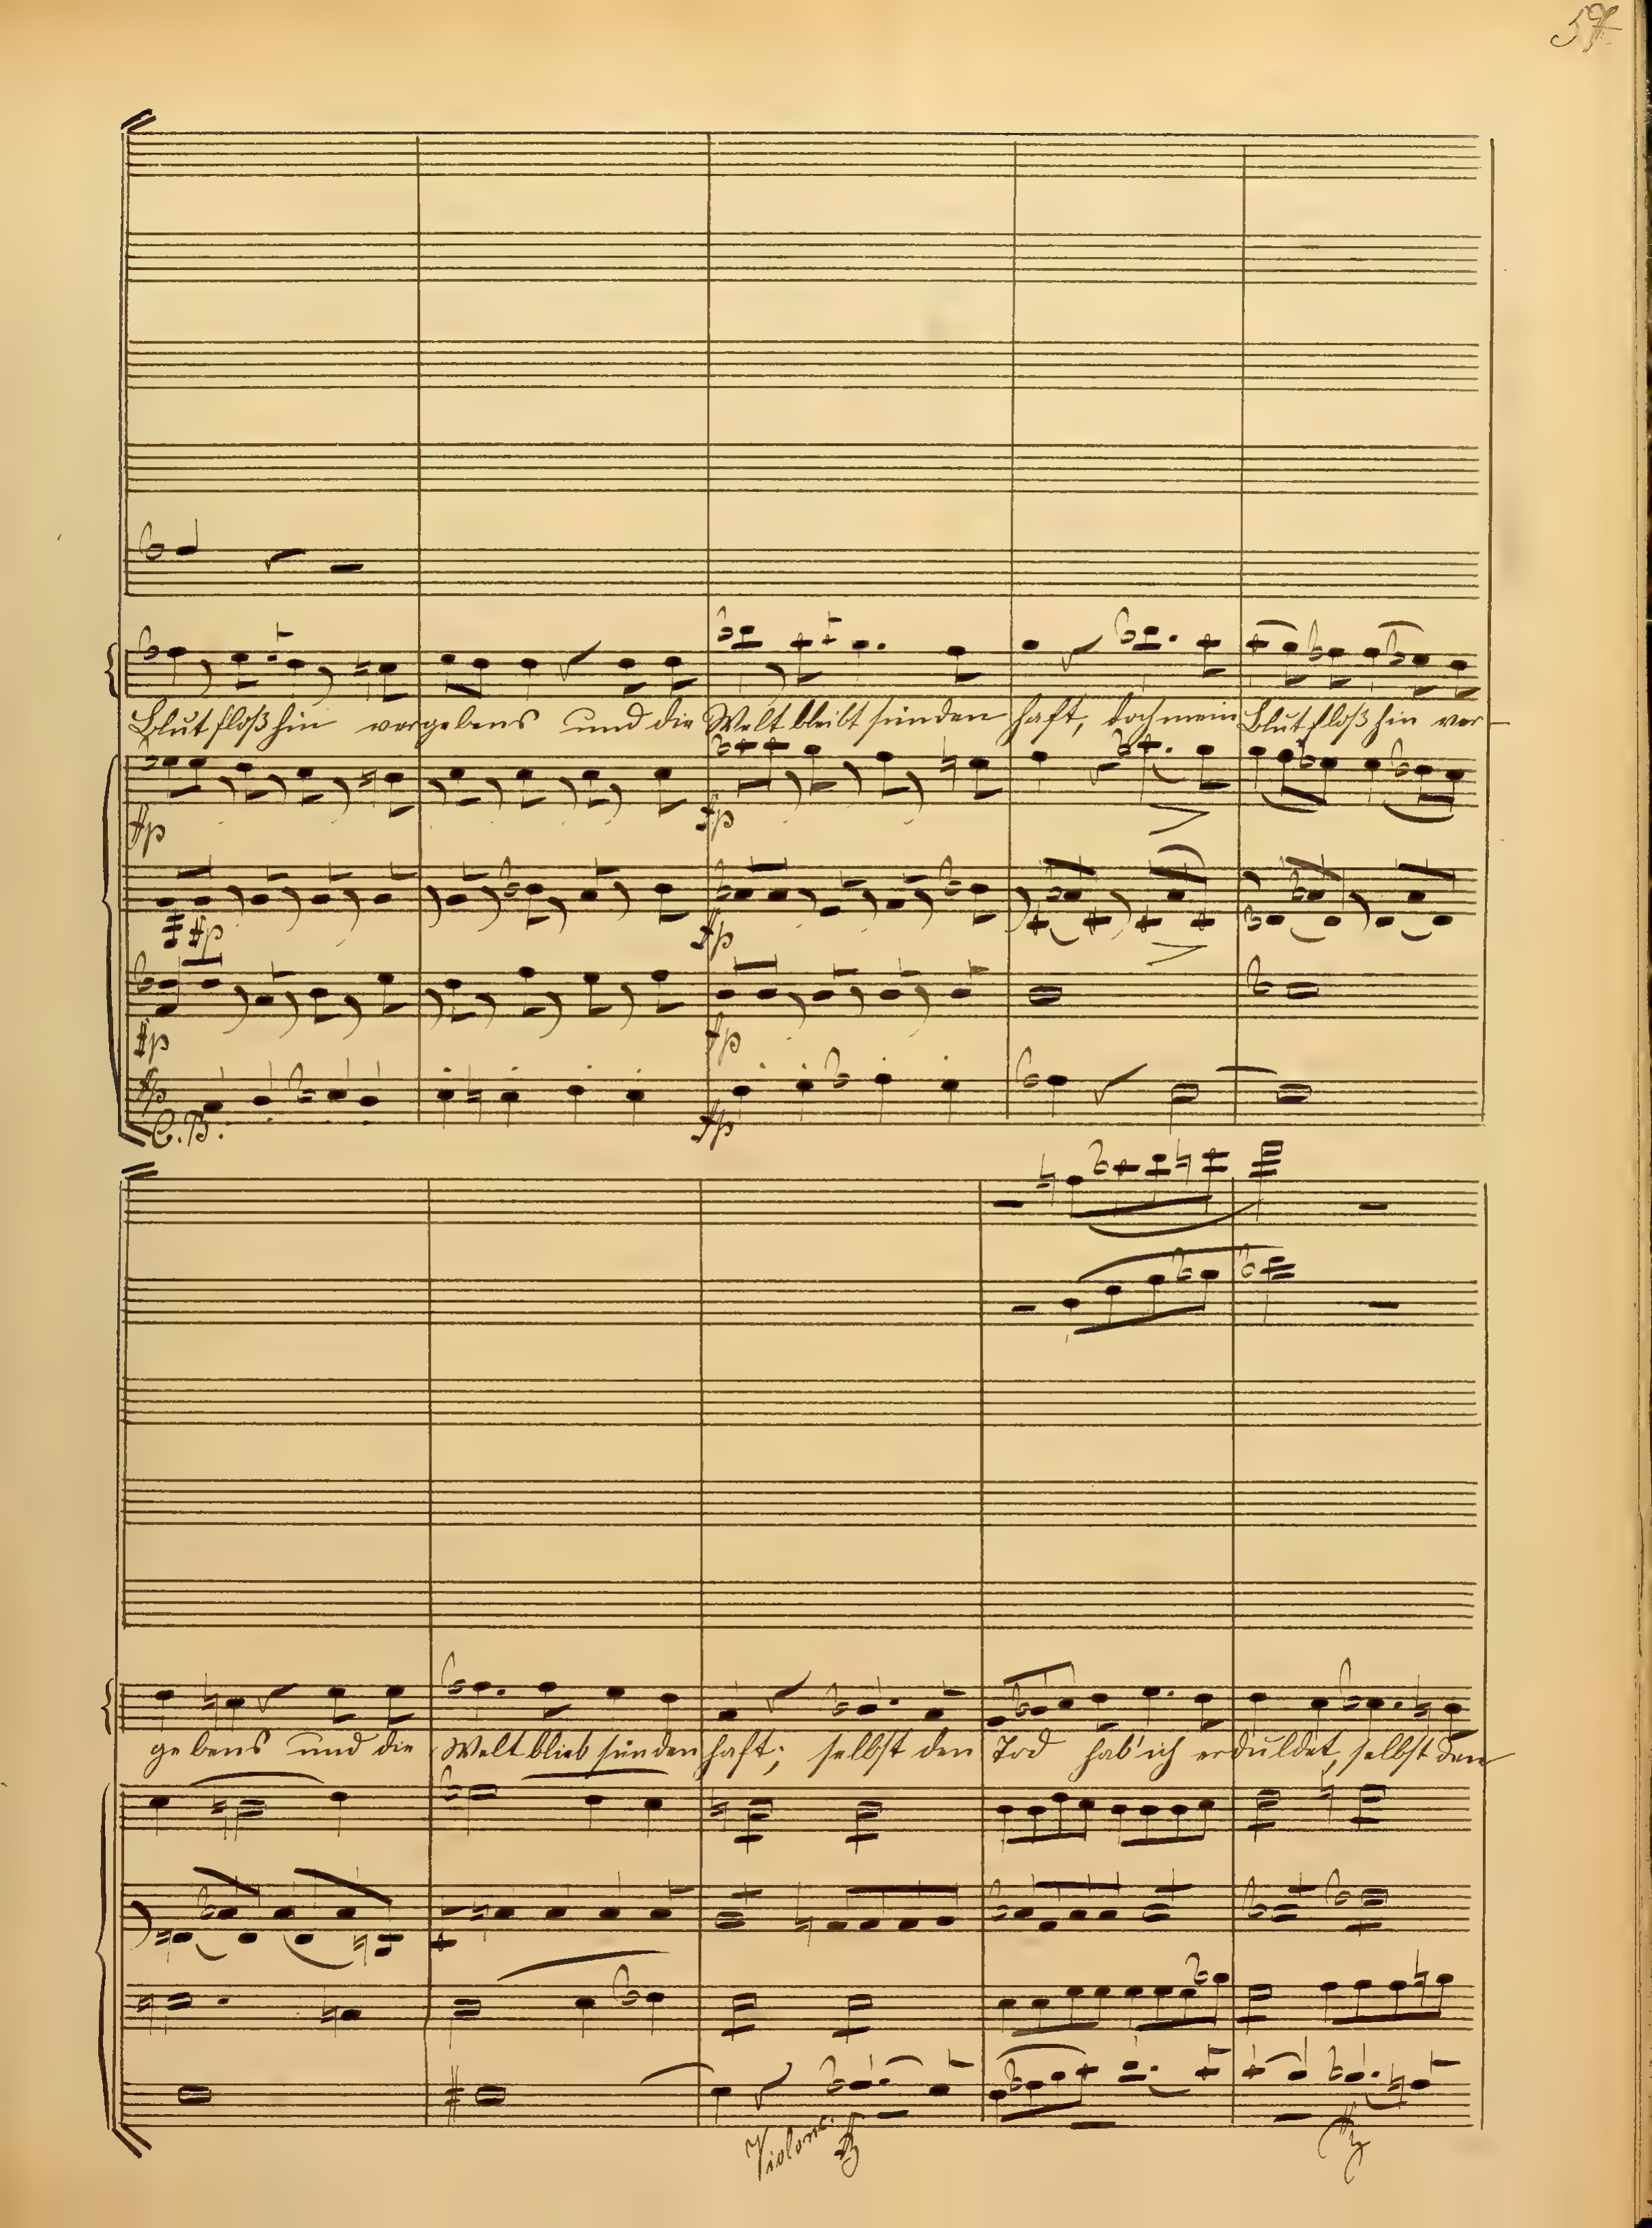 57
Blut floß hin vergebens und die Welt bleibt sünden haft, doch mein Blut floß hin ver-
fp fp
fp fp
fp fp
fp fp
C. B.
gebens und die Welt blieb sünden haft; selbst den Tod hab' ich erduldet, selbst den
Violonc. fz fz